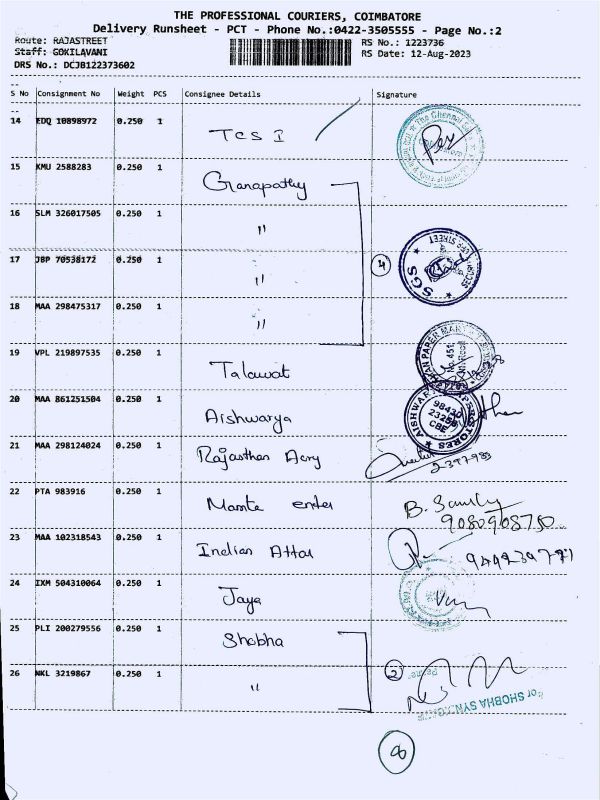 THE PROFESSIONAL COURIERS, COIMBATORE
Delivery Runsheet - PCT - Phone No.:0422-3505555 - Page No.:2
Route: RAJASTREET RS No.: 1223736
Staff: GOKILAVANI RS Date: 12-Aug-2023
DRS No.: DCJB122373602
S No Consignment No Weight PCS Consignee Details Signature
14 EDQ 10898972 0.250 1 TCS I
15 KMU 2588283 0.250 1 Ganapathy
16 SLM 326017505 0.250 1 "
17 JBP 70538172 0.250 1 " 4
SGS
18 MAA 298475317 0.250 1 "
19 VPL 219897535 0.250 1 Talawat
20 MAA 861251504 0.250 1 Aishwarya
98430
CBE
21 MAA 298124024 0.250 1 Rajasthan Acry
22 PTA 983916 0.250 1 Mamta enter
9080908750
23 MAA 102318543 0.250 1 Indian Attar
24 IXM 504310064 0.250 1 Jaya
25 PLI 200279556 0.250 1 Shobha
26 NKL 3219867 0.250 1 " 2
For SHOBHA
8